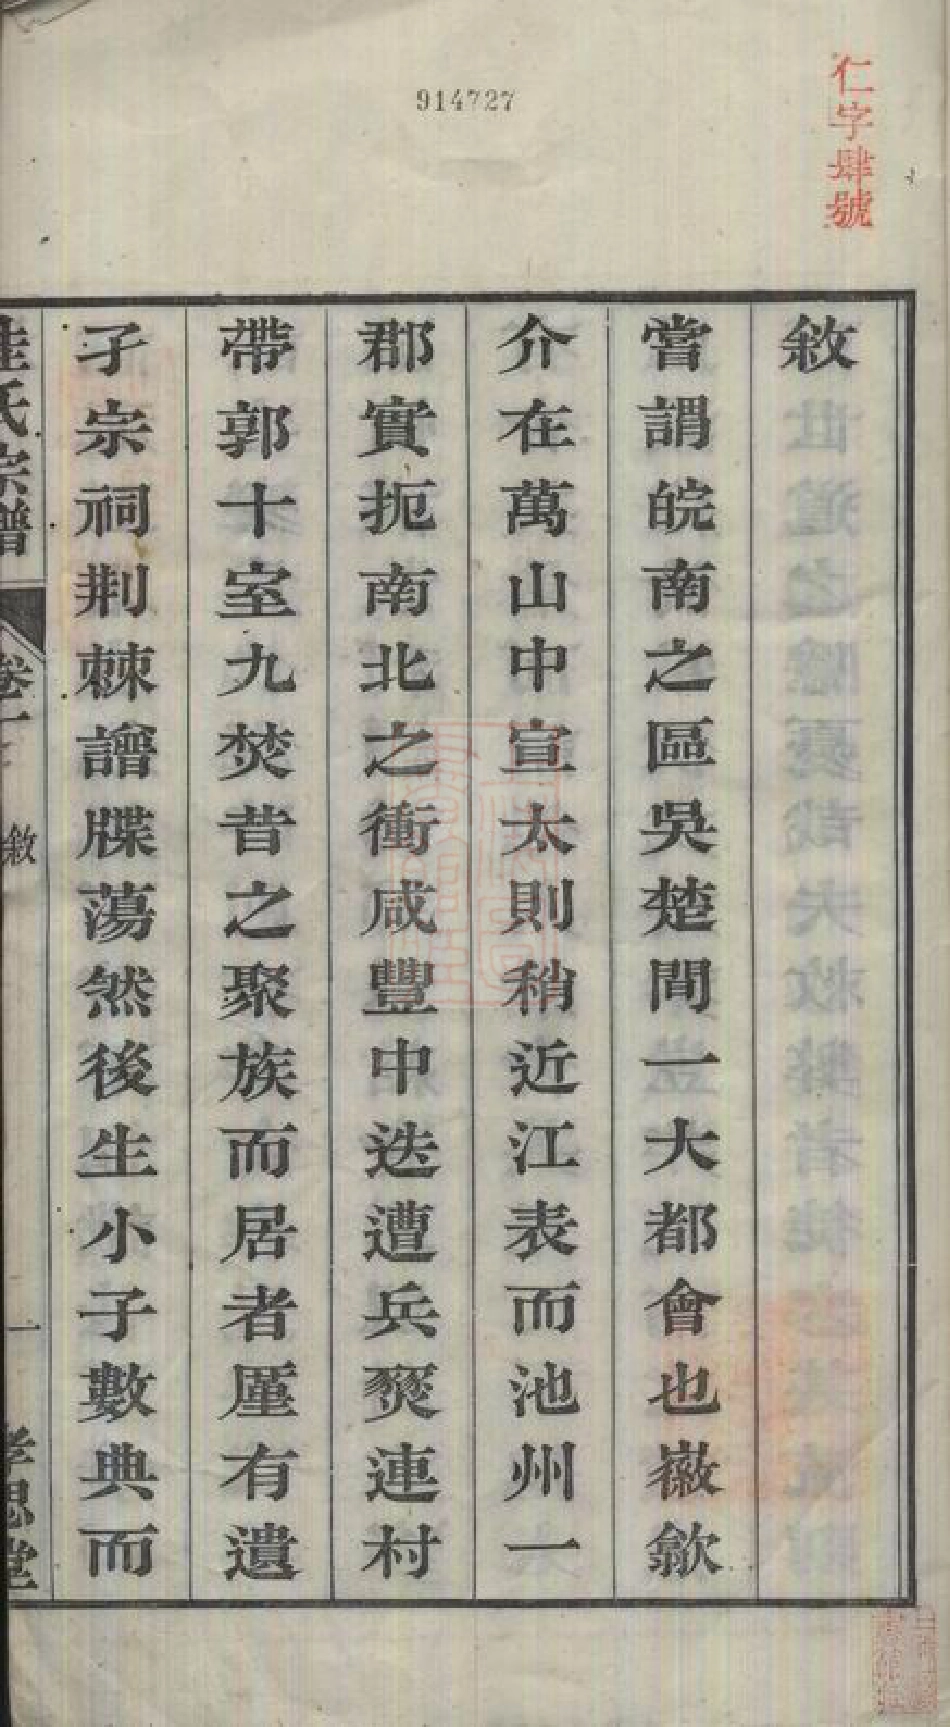 914727
仁字肆號
敘
嘗謂皖南之區吳楚間一大都會也徽歙
介在萬山中宣太則稍近江表而池州一
郡實扼南北之衝咸豐中迭遭兵燹連村
帶郭十室九焚昔之聚族而居者厪有遺
孑宗祠荆棘譜牒蕩然後生小子數典而
桂氏宗譜
卷一
敘
一
孝思堂